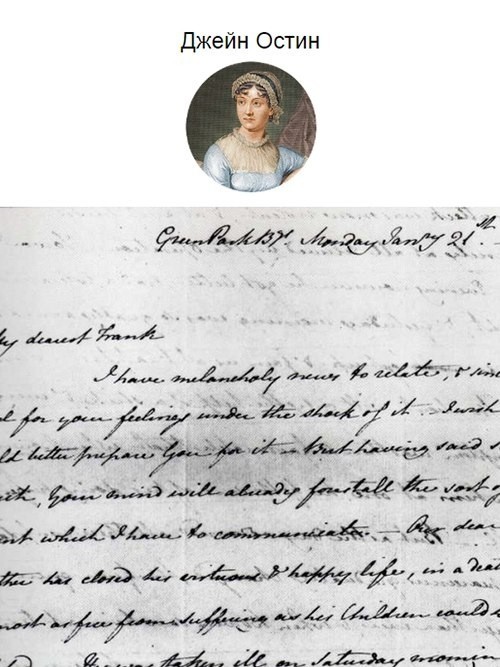 Джейн Остин
Green Park Bgs Monday Jany 21st
My dearest Frank
I have melancholy news to relate, & sin
l for your feelings under the shock of it. I wish
ld better prepare you for it. But having said s
uch, Your mind will already forestall the sort of
nt which I have to communicate. Our dear
ther has closed his virtuous & happy life, in a deat
most as free from suffering as his Children could
He was taken ill on Saturday mornin